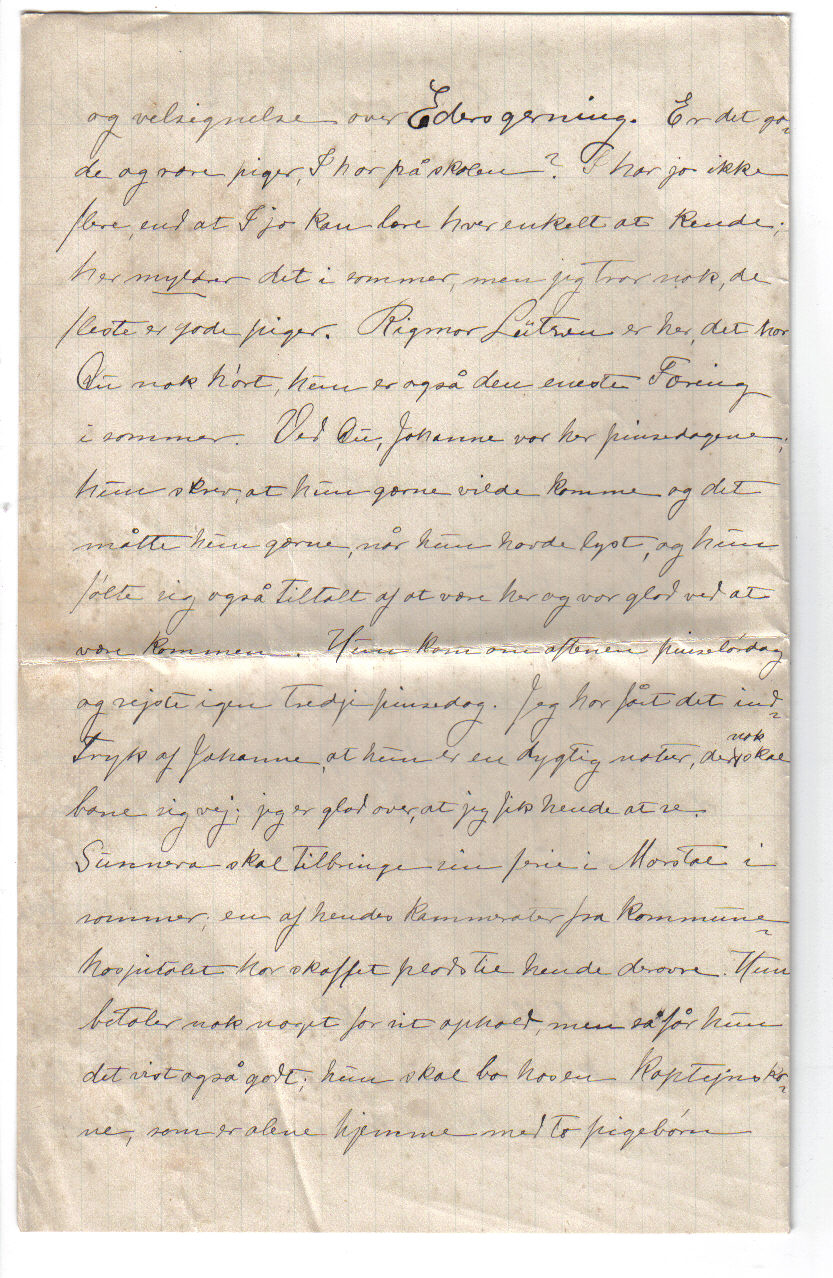 og velsignelse over Eders gerning. Er det go-
de og rare piger, I har på skolen? I har jo ikke
flere, end at I jo kan lære hver enkelt at kende;
her myldrer det i sommer, men jeg tror nok, de
fleste er gode piger. Rigmor Lützen er her, det har
Du nok hørt, hun er også den eneste Færing
i sommer. Ved Du, Johanne var her pinsedagene;
hun skrev, at hun gærne vilde komme og det
måtte hun gærne, når hun havde lyst, og hun
følte sig også tiltalt af at være her og var glad ved at
være kommen. Hun kom om aftenen pinselørdag
og rejste igen tredje pinsedag. Jeg har fået det ind-
tryk af Johanne, at hun er en dygtig natur, der nok skal
bane sig vej; jeg er glad over, at jeg fik hende at se.
Sunneva skal tilbringe sin ferie i Marstal i
sommer; en af hendes kammerater fra kommune-
hospitalet har skaffet plads til hende derovre. Hun
betaler nok noget for sit ophold, men så får hun
det vist også godt; hun skal bo hos en kaptejnsko-
ne, som er alene hjemme med to pigebørn